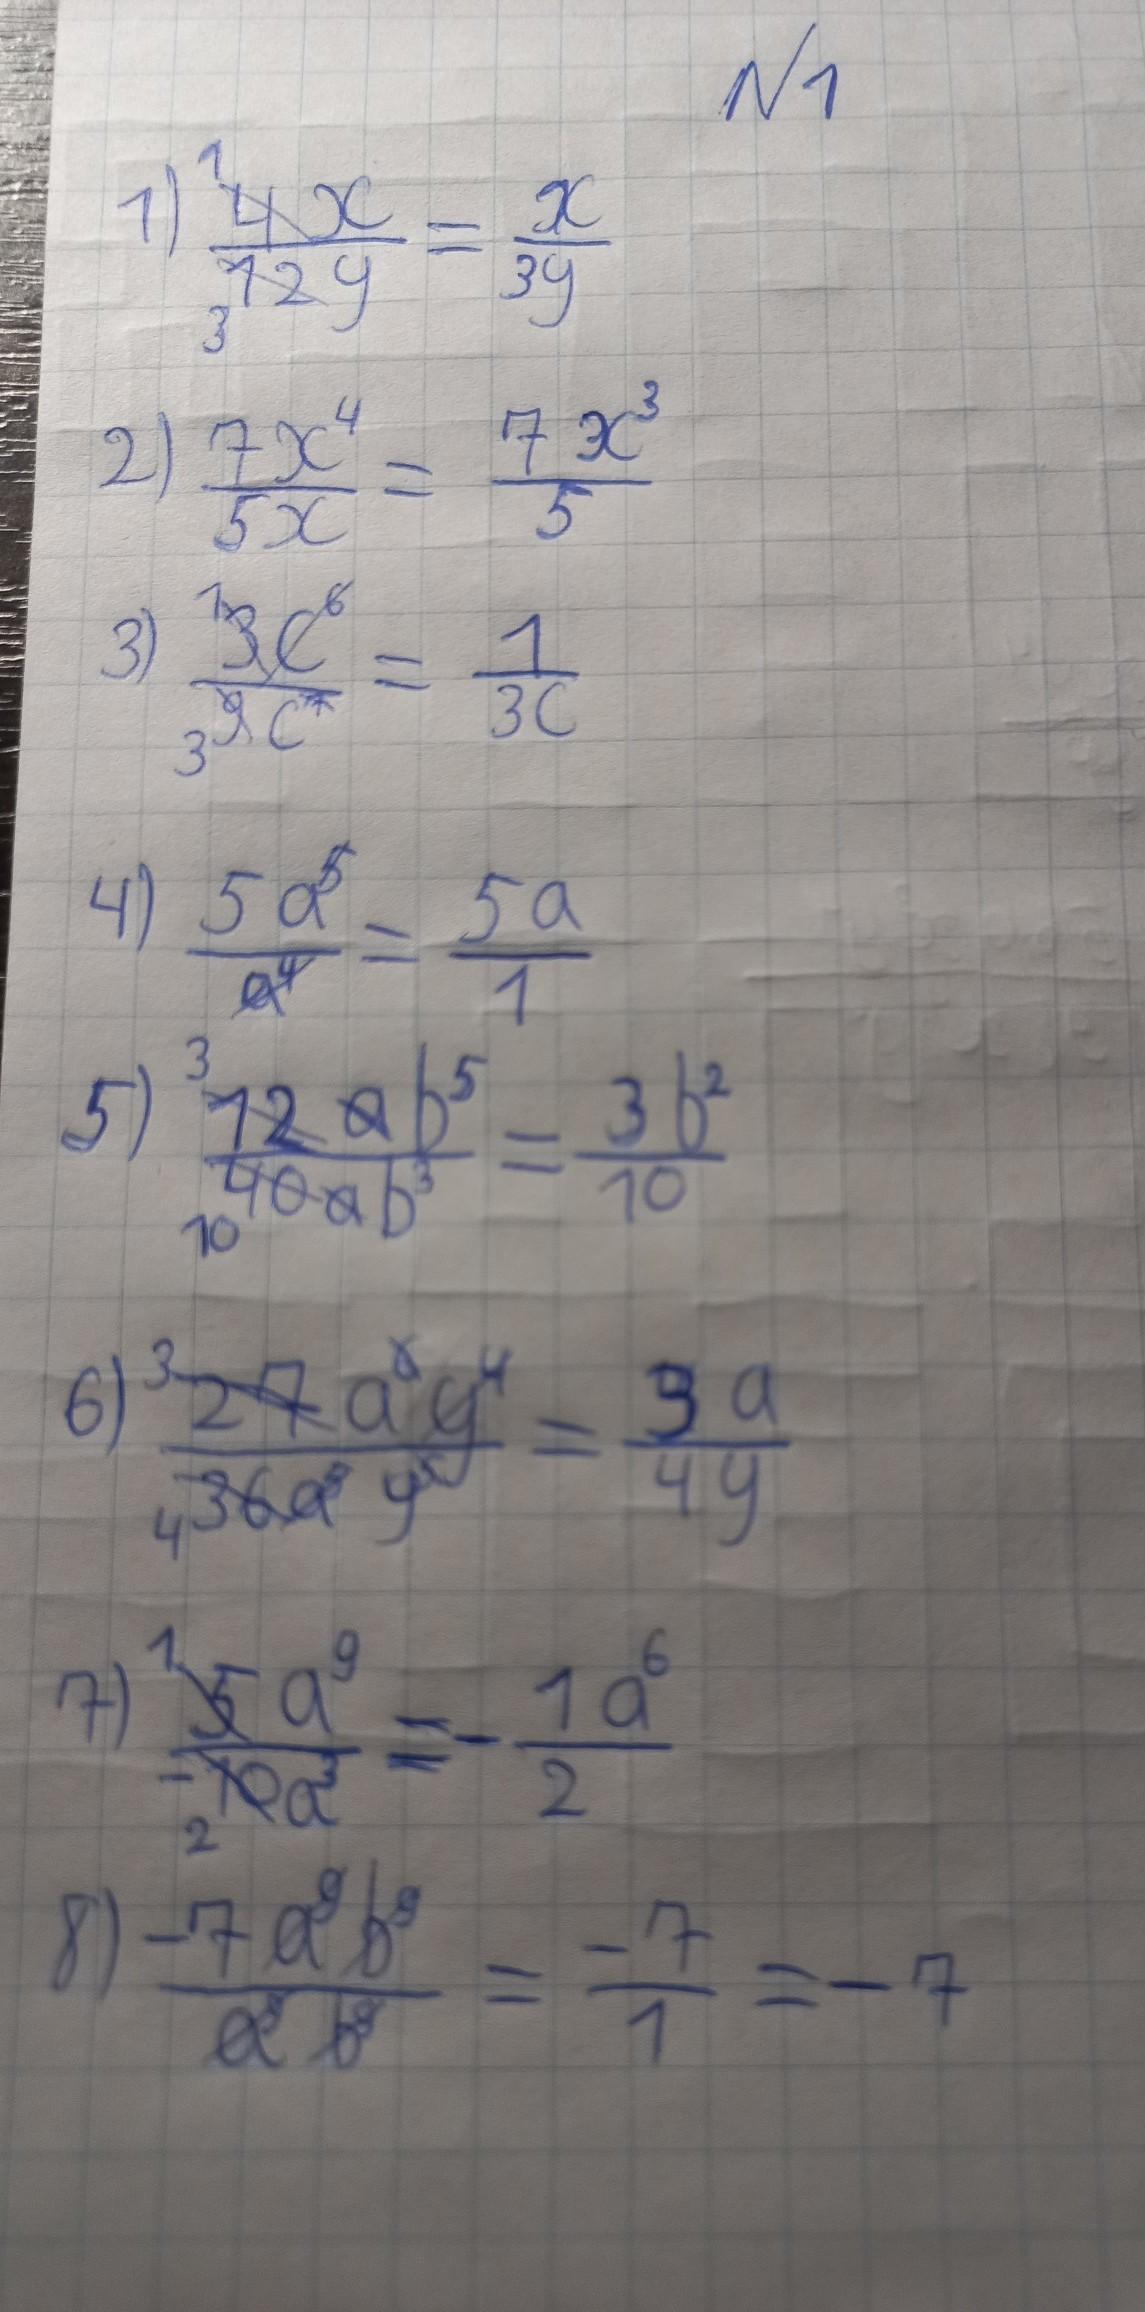 N1
1) 1 4x / 3 12y = x / 3y
2) 7x⁴ / 5x = 7x³ / 5
3) 1 3c⁶ / 3 9c⁷ = 1 / 3c
4) 5a⁵ / a⁴ = 5a / 1
5) 3 12ab⁵ / 10 40ab³ = 3b² / 10
6) 3 27a y⁴ / 4 36a y⁵ = 3a / 4y
7) 1 5a⁹ / -2 10a³ = - 1a⁶ / 2
8) -7a⁹b⁹ / a⁹b⁹ = -7 / 1 = -7